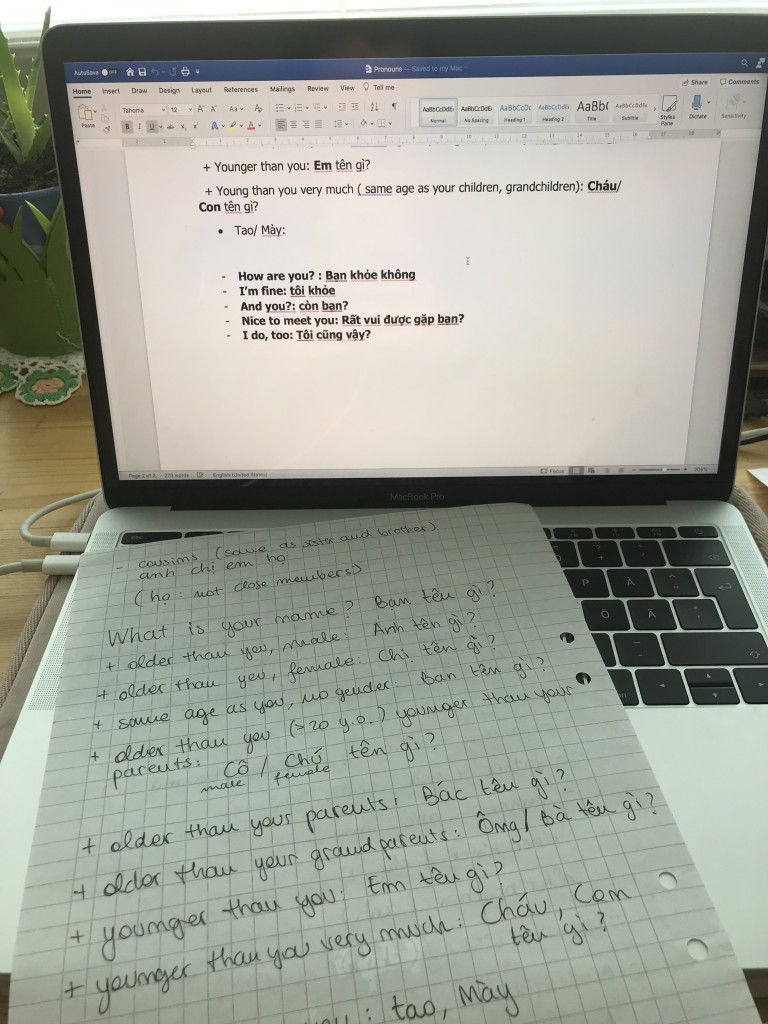 AutoSave OFF
Pronouns — Saved to my Mac
Home Insert Draw Design Layout References Mailings Review View Tell me
Share Comments
Paste
Tahoma 12
AaBbCcDdEe AaBbCcDdEe AaBbCcDc AaBbCcDdEe AaBb( AaBbCcDdEe
Normal No Spacing Heading 1 Heading 2 Title Subtitle
Styles Pane
Dictate
Sensitivity
+ Younger than you: Em tên gì?
+ Young than you very much ( same age as your children, grandchildren): Cháu/
Con tên gì?
• Tao/ Mày:
- How are you? : Bạn khỏe không
- I'm fine: tôi khỏe
- And you?: còn bạn?
- Nice to meet you: Rất vui được gặp bạn?
- I do, too: Tôi cũng vậy?
Page 2 of 2 273 words English (United States)
Focus
MacBook Pro
esc
P Å
Ö Ä
- cousins (same as sister and brother)
anh chị em họ
(họ: not close members)
What is your name? Bạn tên gì?
+ older than you, male: Anh tên gì?
+ older than you, female: Chị tên gì?
+ same age as you, no gender: Bạn tên gì?
+ older than you (>20 y.o.) younger than your
parents: Cô / Chú tên gì?
male female
+ older than your parents: Bác tên gì?
+ older than your grandparents: Ông/ Bà tên gì?
+ younger than you: Em tên gì?
+ younger than you very much: Cháu, Con
tên gì?
: tao, mày